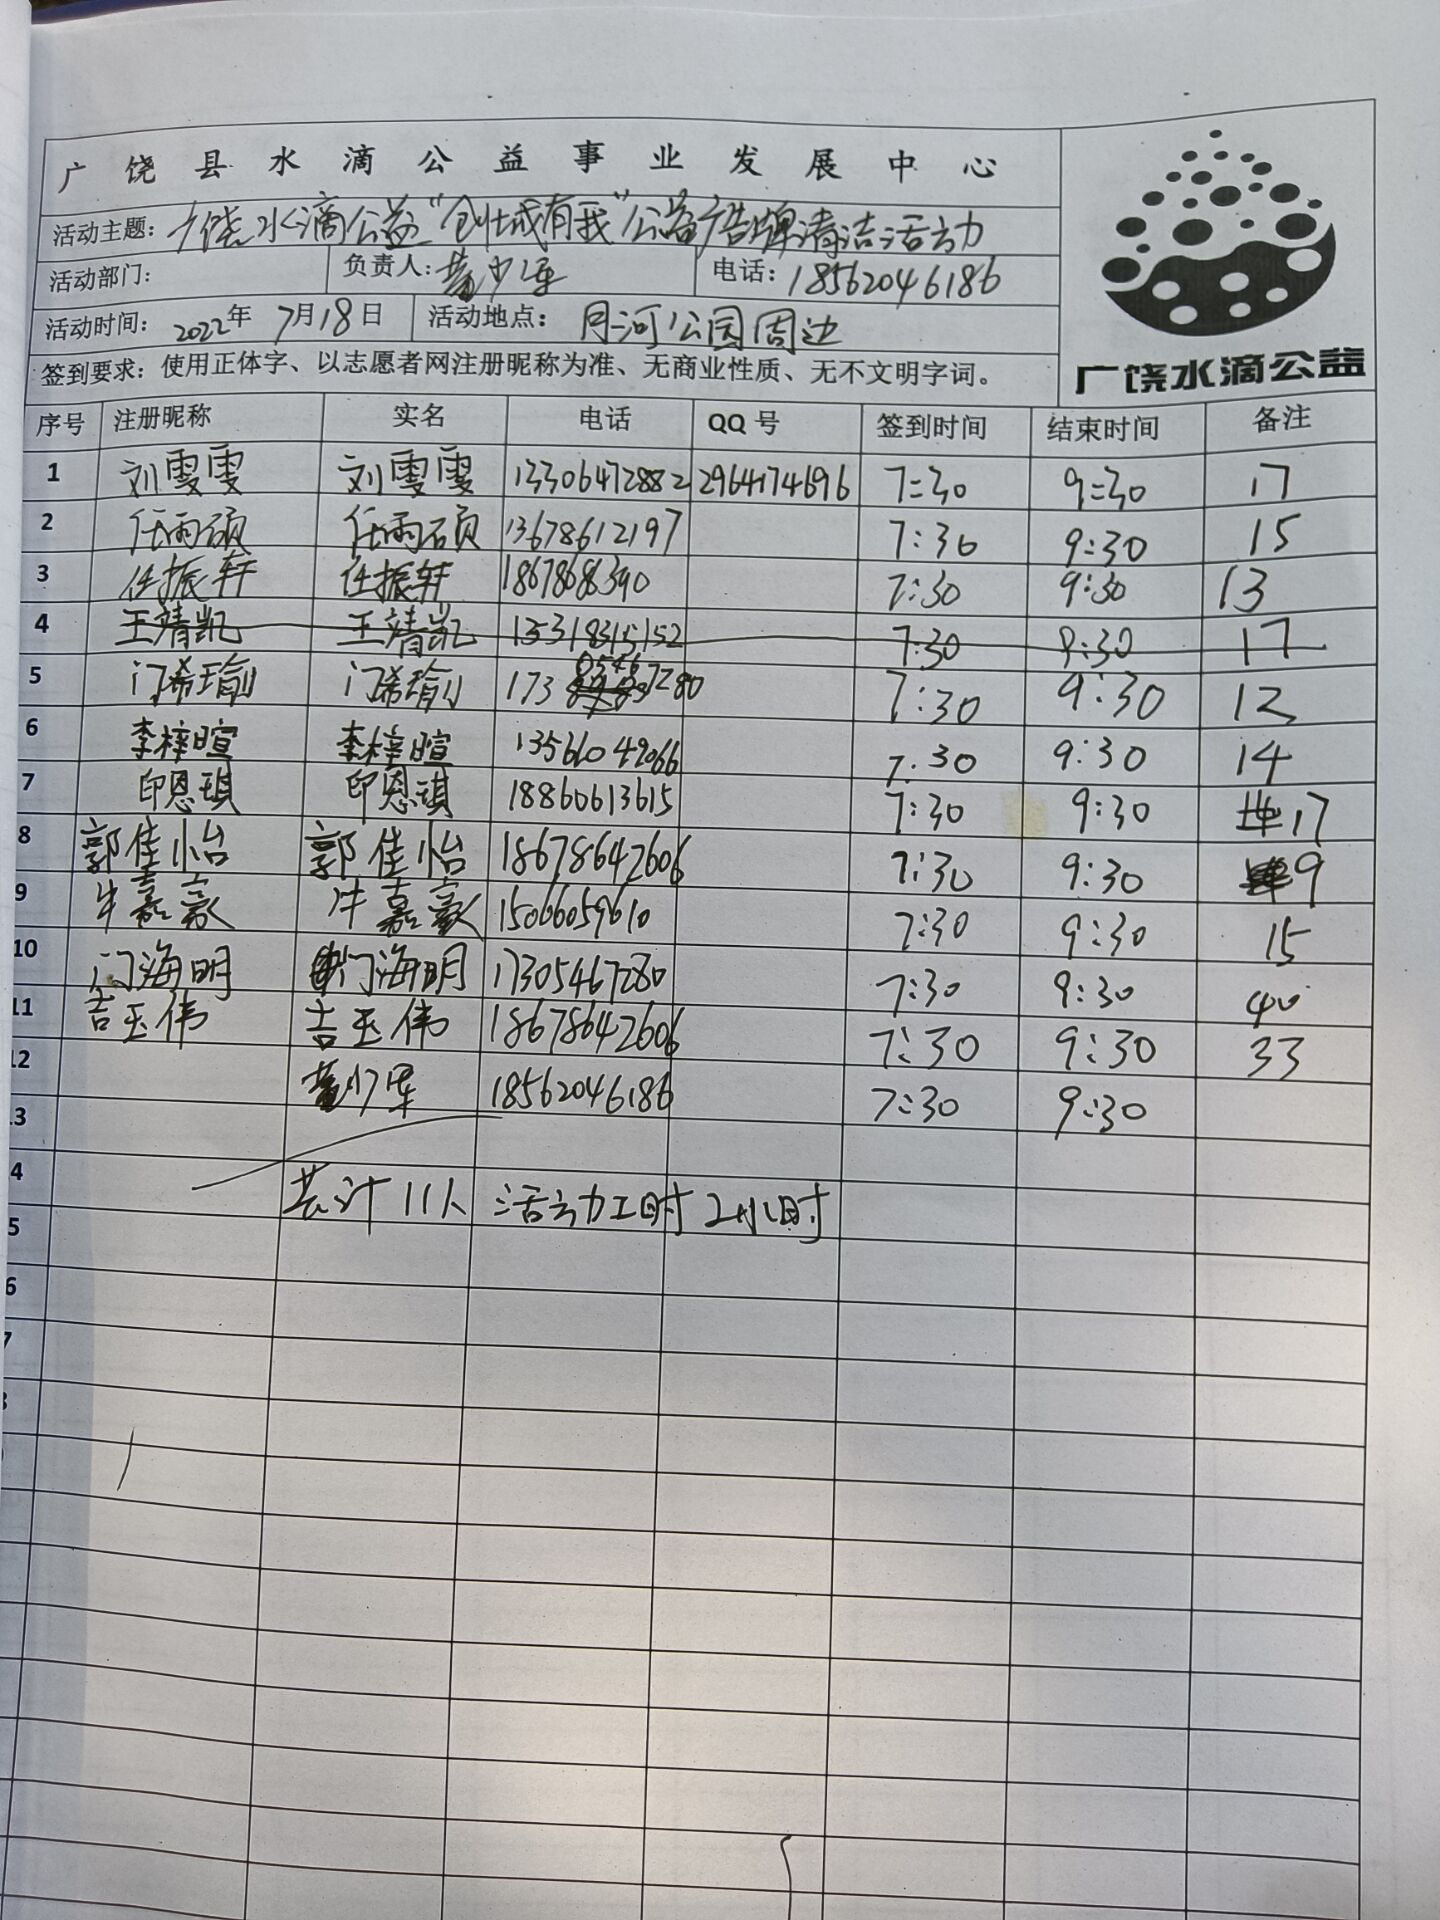 广饶县水滴公益事业发展中心
活动主题：广饶水滴公益"创城有我"公益广告牌清洁活动
活动部门： 负责人： 电话：18562046186
活动时间：2022年 7月18日 活动地点：月河公园周边
签到要求：使用正体字、以志愿者网注册昵称为准、无商业性质、无不文明字词。
广饶水滴公益
序号 注册昵称 实名 电话 QQ号 签到时间 结束时间 备注
1 刘雯雯 刘雯雯 13306472882 2964174696 7:30 9:30 17
2 任雨硕 任雨硕 13678612197 7:30 9:30 15
3 任振轩 任振轩 1867868390 7:30 9:30 13
4 王靖凯 王靖凯 15318315152 7:30 9:30 17
5 门希瑜 门希瑜 17305467280 7:30 9:30 12
6 李梓暄 李梓暄 13561049066 7:30 9:30 14
7 印恩琪 印恩琪 18860613615 7:30 9:30 17
8 郭佳怡 郭佳怡 18678642606 7:30 9:30 9
9 牛嘉豪 牛嘉豪 15066059610 7:30 9:30 15
10 门海明 门海明 17305467280 7:30 9:30 40
11 吉玉伟 吉玉伟 18678642606 7:30 9:30 33
12 18562046186 7:30 9:30
13
4 共计11人 活动工时2小时
5
6
7
8